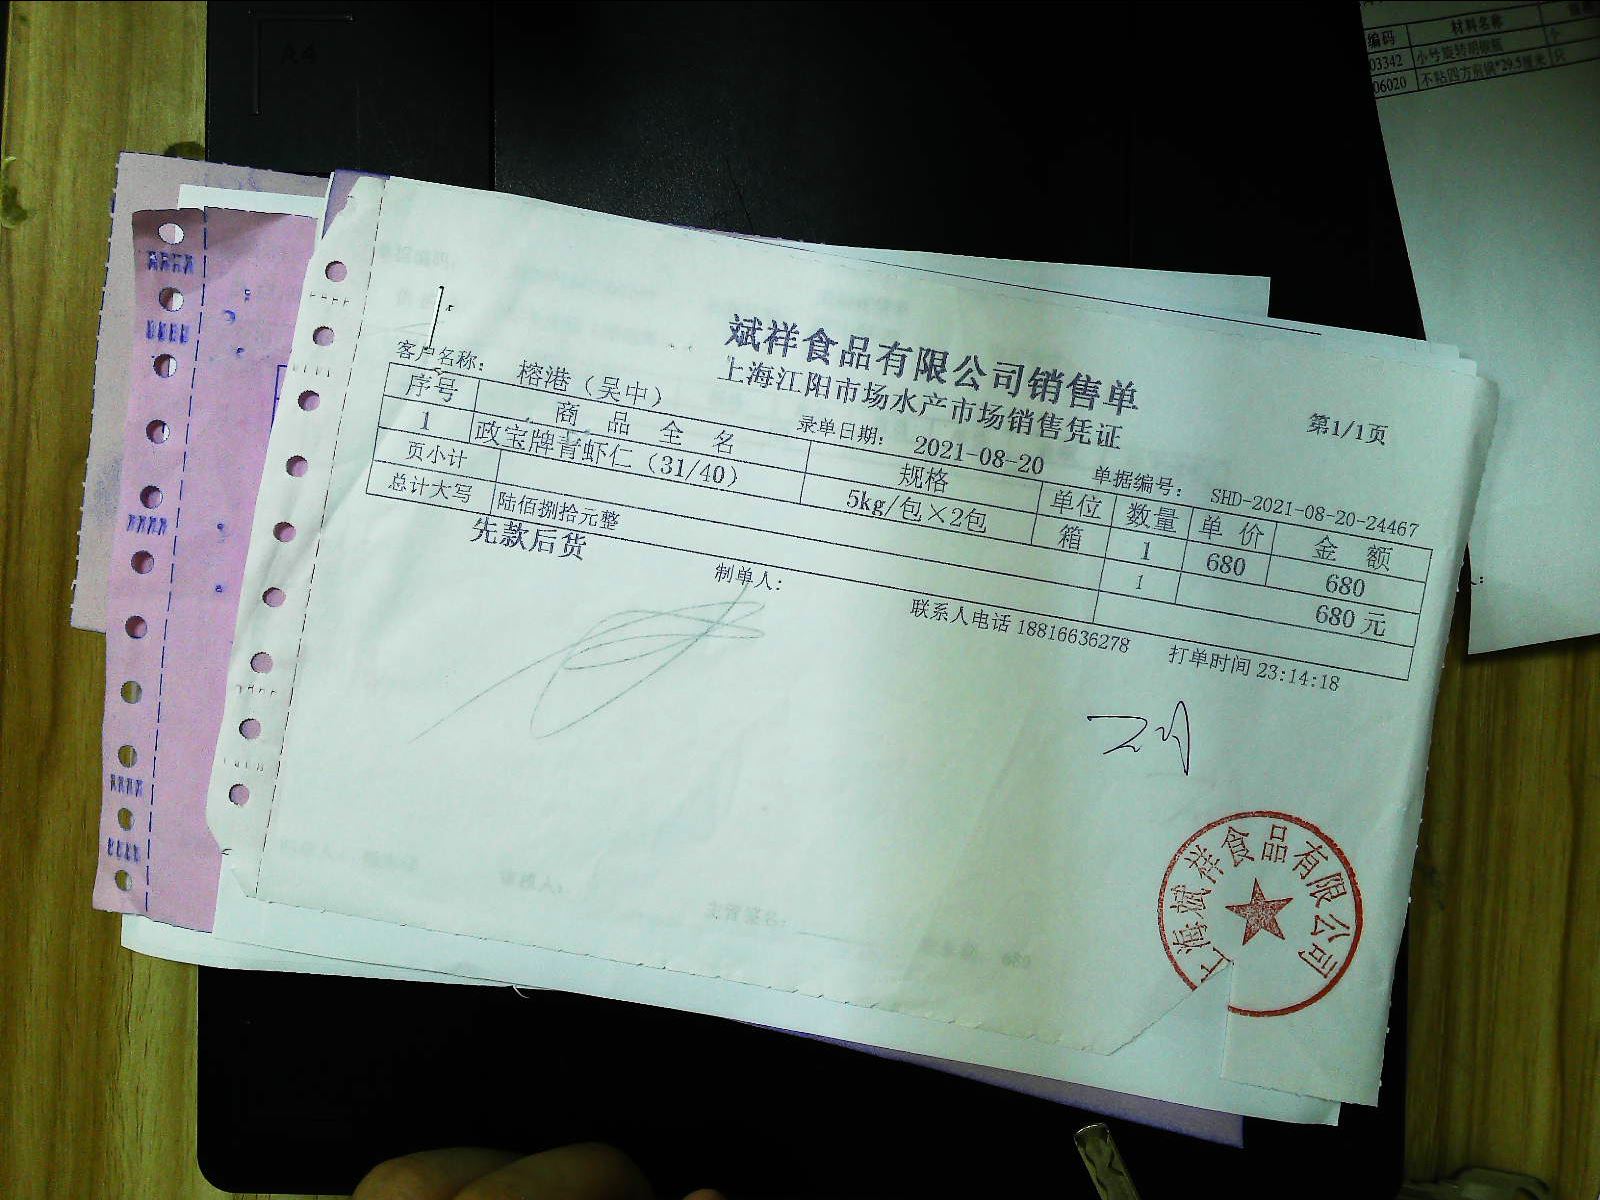 斌祥食品有限公司销售单
上海江阳市场水产市场销售凭证
第1/1页
客户名称： 榕港（吴中） 录单日期： 2021-08-20 单据编号： SHD-2021-08-20-24467
序号 商品全名 规格 单位 数量 单价 金额
1 政宝牌青虾仁（31/40） 5kg/包×2包 箱 1 680 680
页小计 1 680 元
总计大写 陆佰捌拾元整
先款后货 制单人： 联系人电话 18816636278 打单时间 23:14:18
上海斌祥食品有限公司
编码 材料名称
03342 小号旋转胡椒瓶 个
06020 不粘四方煎锅*29.5厘米 只
A4